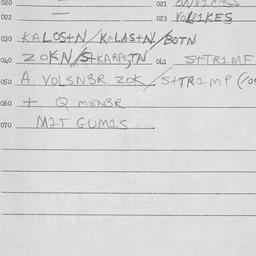 020 021
022 023 VOL81KES
030 KALOS+N/KALAS+N/BOTN
040 ZOKN/S+KARP5TN 041 S++TR1MF
050 A VOLSN3R ZOK/S++TR1MP
060 + Q MEN3R
070 M2T GUM1S